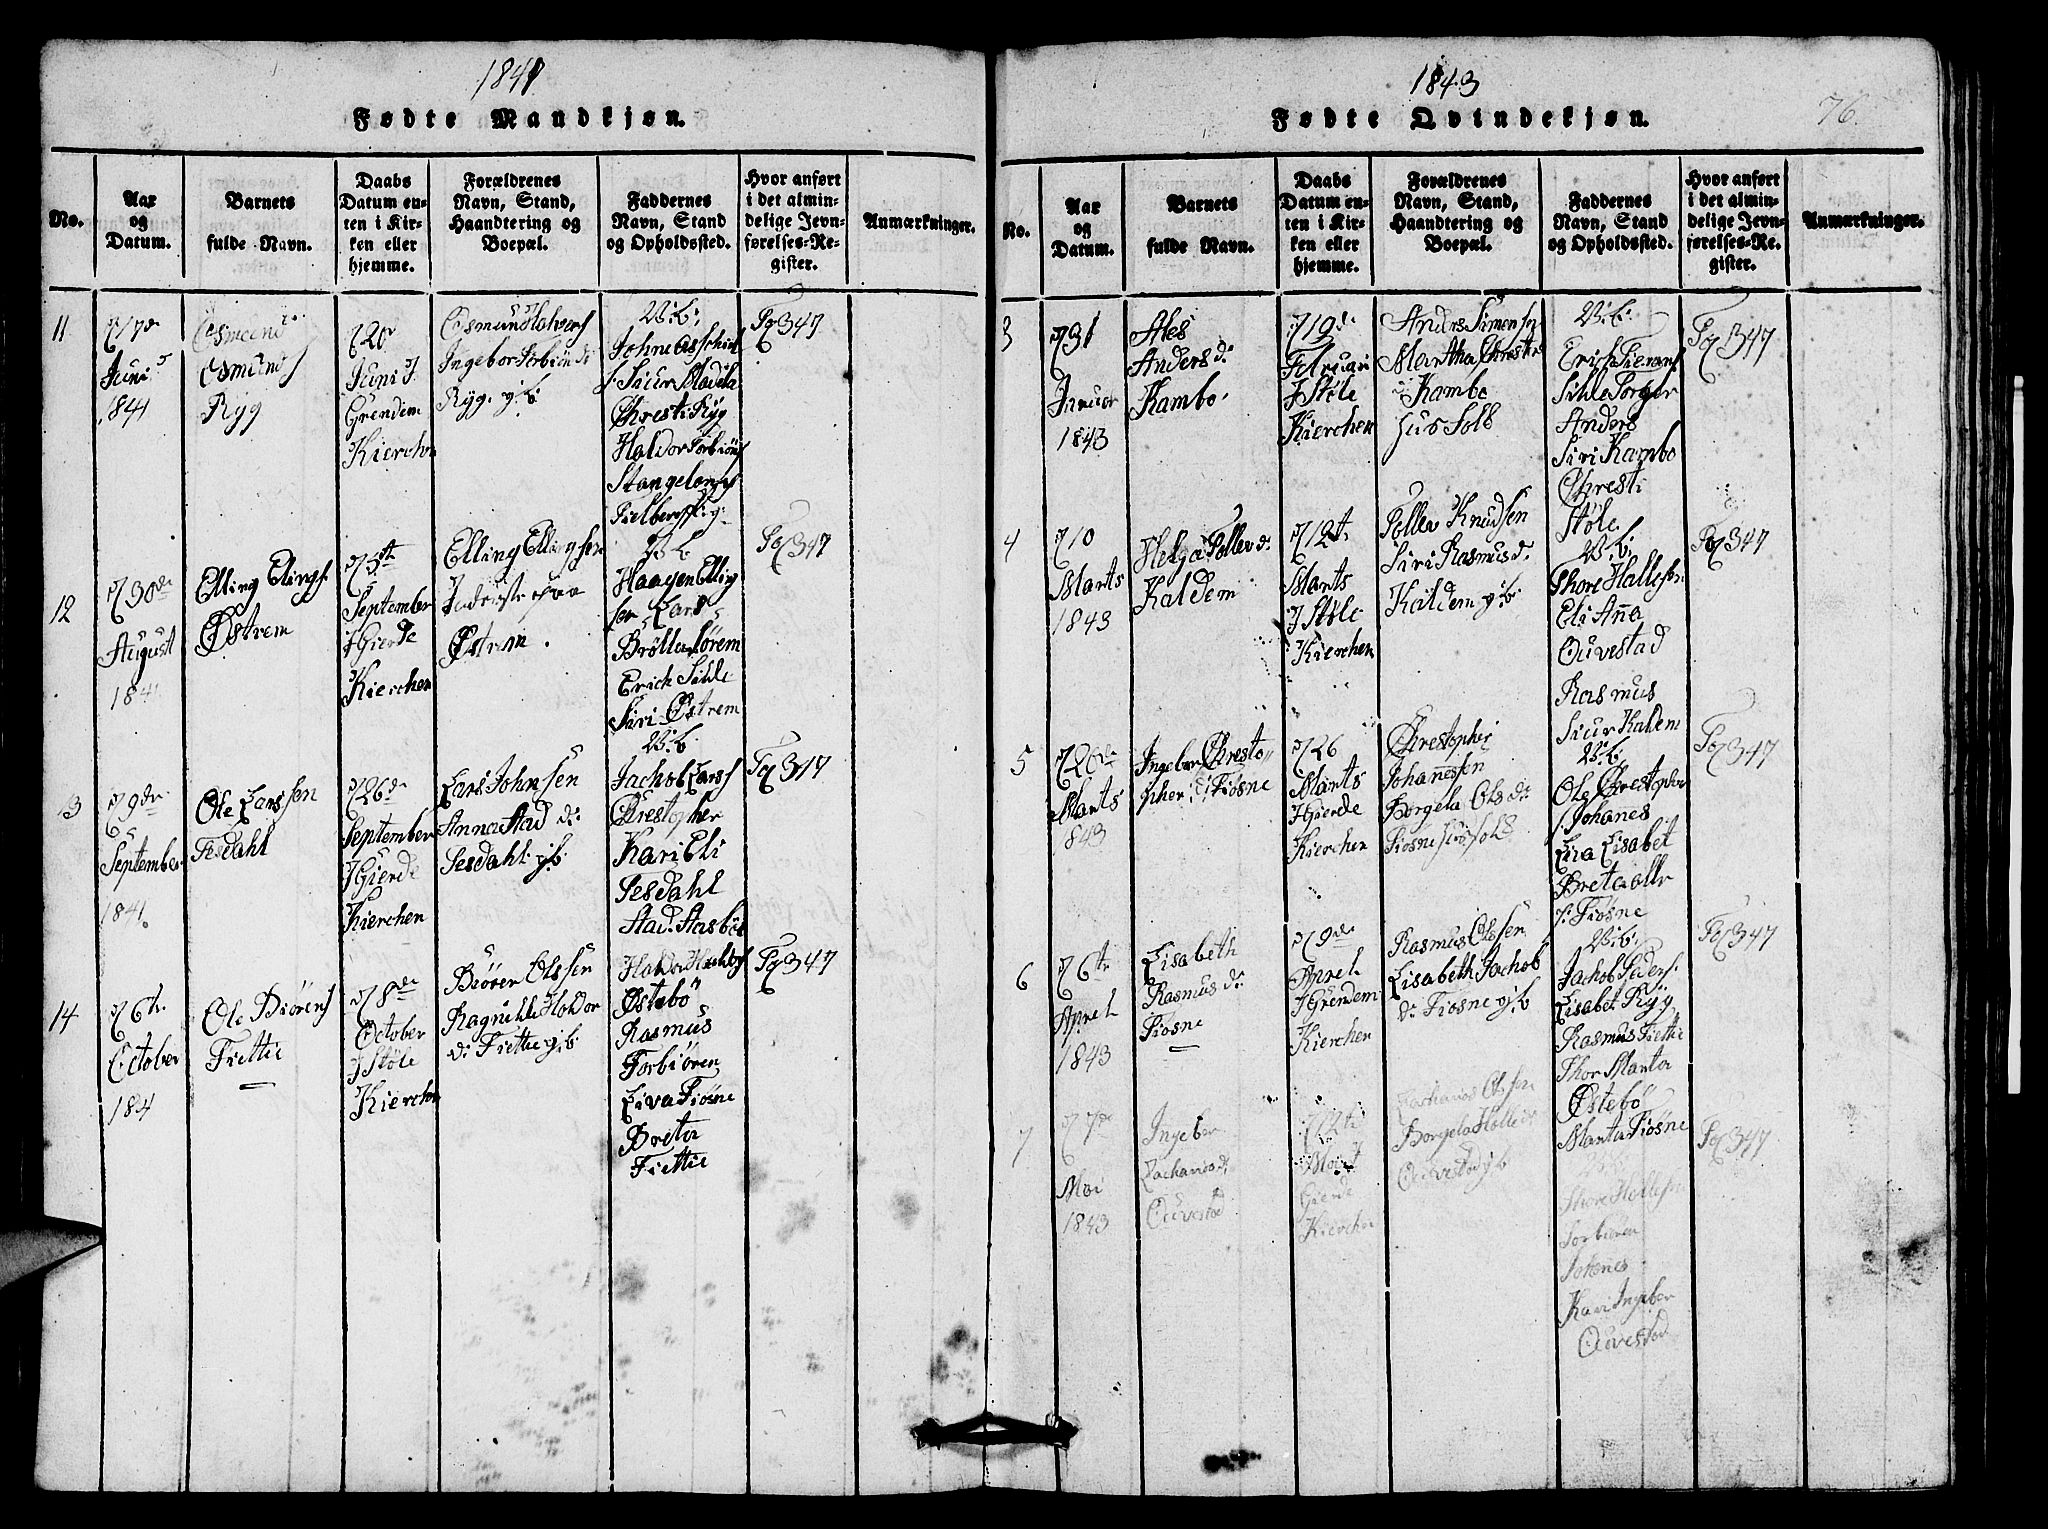 1841
Fødte Mandkjøn.
No.
Aar
og
Datum.
Barnets
fulde Navn.
Daabs
Datum en-
ten i Kir-
ken eller
hjemme.
Forældrenes
Navn, Stand,
Haandtering og
Boepæl.
Faddernes
Navn, Stand
og Opholdssted.
Hvor anført
i det almin-
delige Jevn-
førelses-Re-
gister.
Anmærkninger.
11
Juni
1841
Osmund
Ryg
Juni J
Grendem
Kierchen
Osmun Halvors
Ingebor Torbiøn d:
Ryg. g.b.
V: b:
Christi Ryg
Haldor Torbiøns
Stangeland
Pag 347
12
30de
August
1841
Elling Elings
Østrem
5te
September
J Gierde
Kierchen
Elling Ellingsen
Østrem.
V: b
Haagen Elling
sen Lars
Erich Silde
Siri Østrem
Pag 347
13
9de
September
1841.
Ole Larssen
Tesdahl
26de
September
J Gierde
Kierchen
Lars Johnsen
Anna Stad d:
Tesdahl g.b.
V: b.
Jachob Larss
Christopher
Kari Eli
Tesdahl
Stad.
Pag 347
14
6te
October
184
Ole Biørens
Frettie
8de
October
J Støle
Kierchen
Biøren Olssen
Ragnilde Holdor
d: Frettie g.b.
Østebö
Rasmus
Torbiøren
Eiva Fiøsne
Breta
Frettie
Pag 347
1843
76.
Fødte Qvindekjøn.
No.
Aar
og
Datum.
Barnets
fulde Navn.
Daabs
Datum en-
ten i Kir-
ken eller
hjemme.
Forældrenes
Navn, Stand,
Haandtering og
Boepæl.
Faddernes
Navn, Stand
og Opholdssted.
Hvor anført
i det almin-
delige Jevn-
førelses-Re-
gister.
Anmærkninger.
3
31
Januar
1843
Ales
Anders d:
Kambo
19de
Februari
J Støle
Kierchen
Anders Simonsen
Martha Chrest
d: Kambo
Hus folk
V: b:
Anders
Siri Kambo
Christi
Støle
Pag 347
4
10
Marts
1843
Helga Tollev d:
Kaldem
12te
Marts
J Støle
Kierchen
Tollev Knudsen
Siri Rasmus d:
Kaldem g.b.
V: b:
Thore Hallesen
Eli Anna
Ouvestad
Rasmus
Siur Kaldem
Pag 347
5
20de
Marts
1843
Ingebor Chresto-
pher d: Fiøsne
26
Marts
J Gierde
Kierchen
Christopher
Johannessen
Borgela Ols d:
Fiøsne hus folk
V: b:
Ole Christopher
Johanes
Lisabet
Breta alle
p: Fiøsne
Pag 347
6
6te
Aprel
1843
Lisabeth
Rasmus d:
Fiosne
9de
Aprel
J Grendem
Kierchen
Rasmus Olssen
Lisabeth Jachob
d: Fiosne g.b
V: b:
Jachob Peders
Lisabet Ryg
Rasmus Frettie
Thor Manta
Østebö
Manta Fiøsne
Pag 347
7
7de
Mai
1843
Ingebor
Zacharias d:
Ouvestad
Gierde
Kierchen
Zacharias Olssen
Borgela Holle d:
Ouvestad g.b
Thore Hallesen
Torbiøren
Johanes
Kari Ingebor
Ouvestad
Pag 347